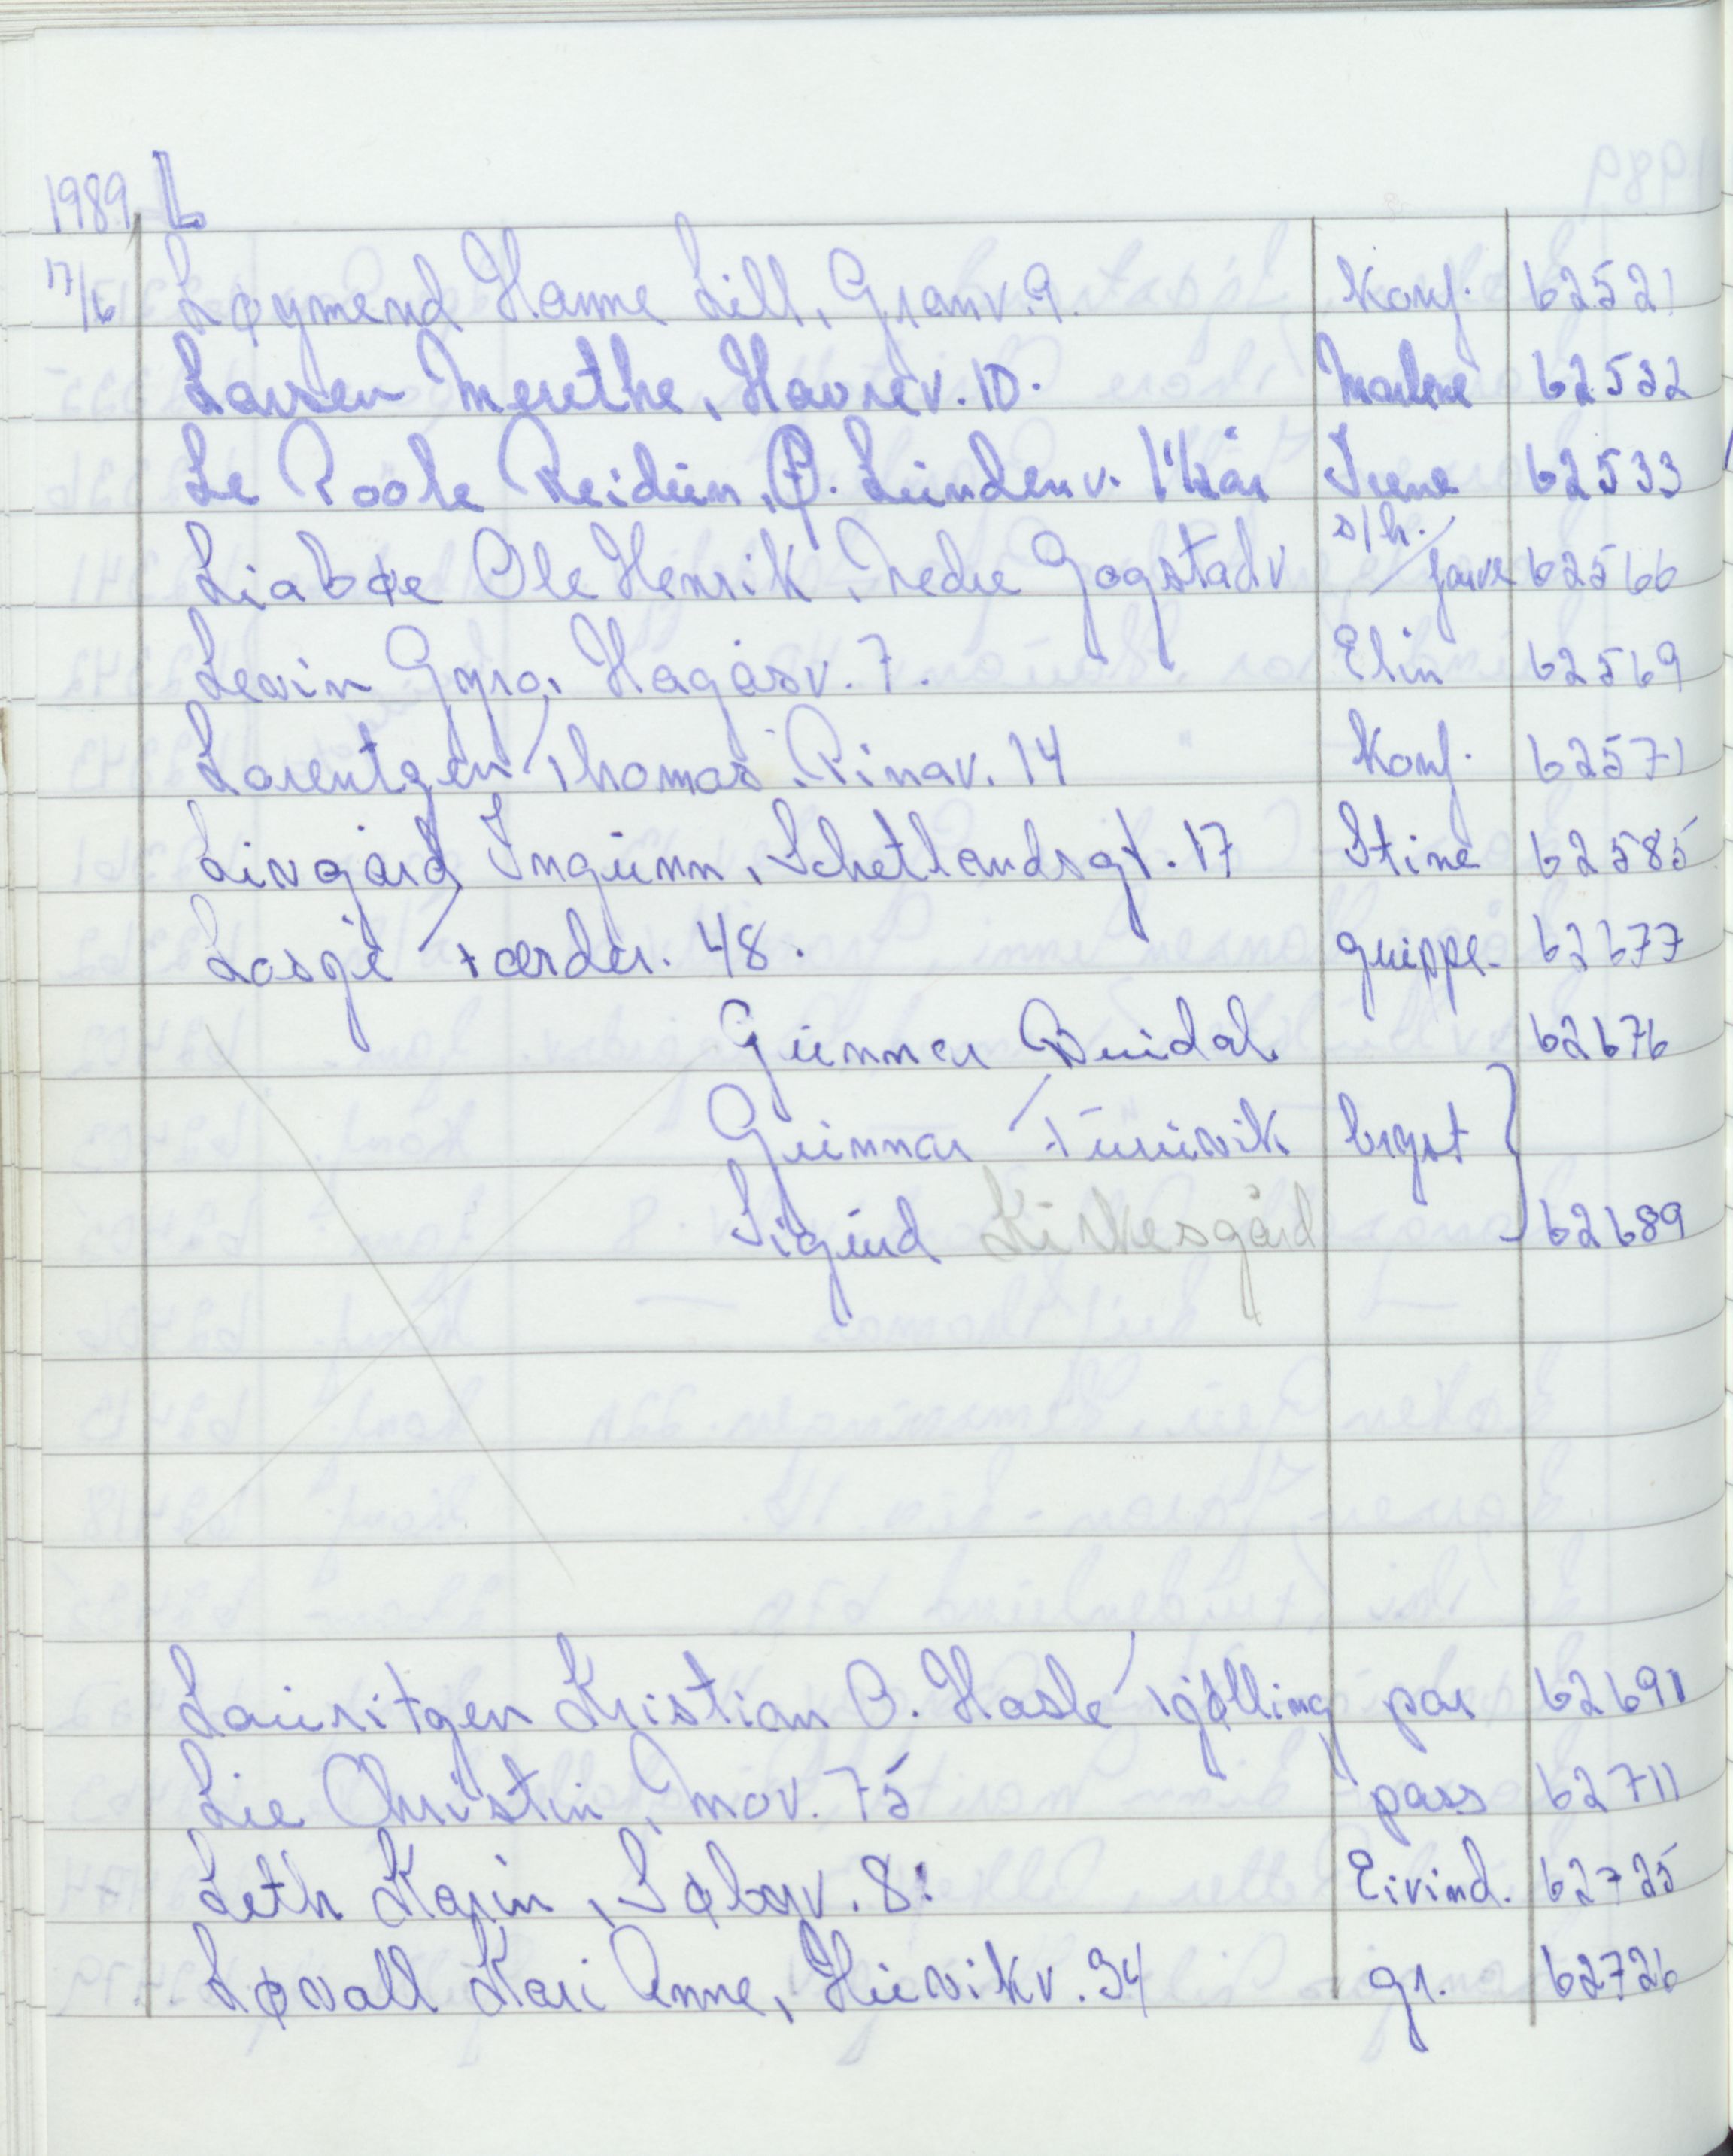 1989 L
17/6 Løymend Hanne Lill, Granv. 9. Konf. 62521
Larsen Merethe, Havrev. 10. Marlene 62532
Le Poole Reidun, P. Lundenv. 1 Kår Irene 62533
Liabøe Ole Henrik, Nedre Gogstadv s/h. / farve 62566
Levin Gyro, Hagåsv. 7. Elin 62569
Lorentzen Thomas, Rinav. 14 Konf. 62571
Livgård Ingunn, Schetlandsgt. 17 Stine 62585
Losje Færder. 48. gruppe. 62677
Gunnar Bruidal 62676
Gunnar Furuvik bryst
Sigurd Kirkesgård 62689
Lauritzen Kristian B. Hasle Tjølling par 62691
Lie Christin, Mov. 75 pass 62711
Leth Karin, Søbyv. 8. Eivind. 62725
Løvall Kari Anne, Huvikv. 34 gr. 62726